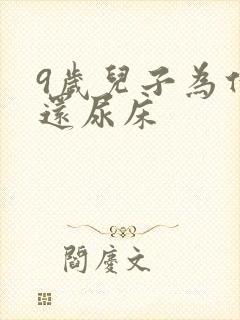 9歲兒子為什
還尿床
閻慶文